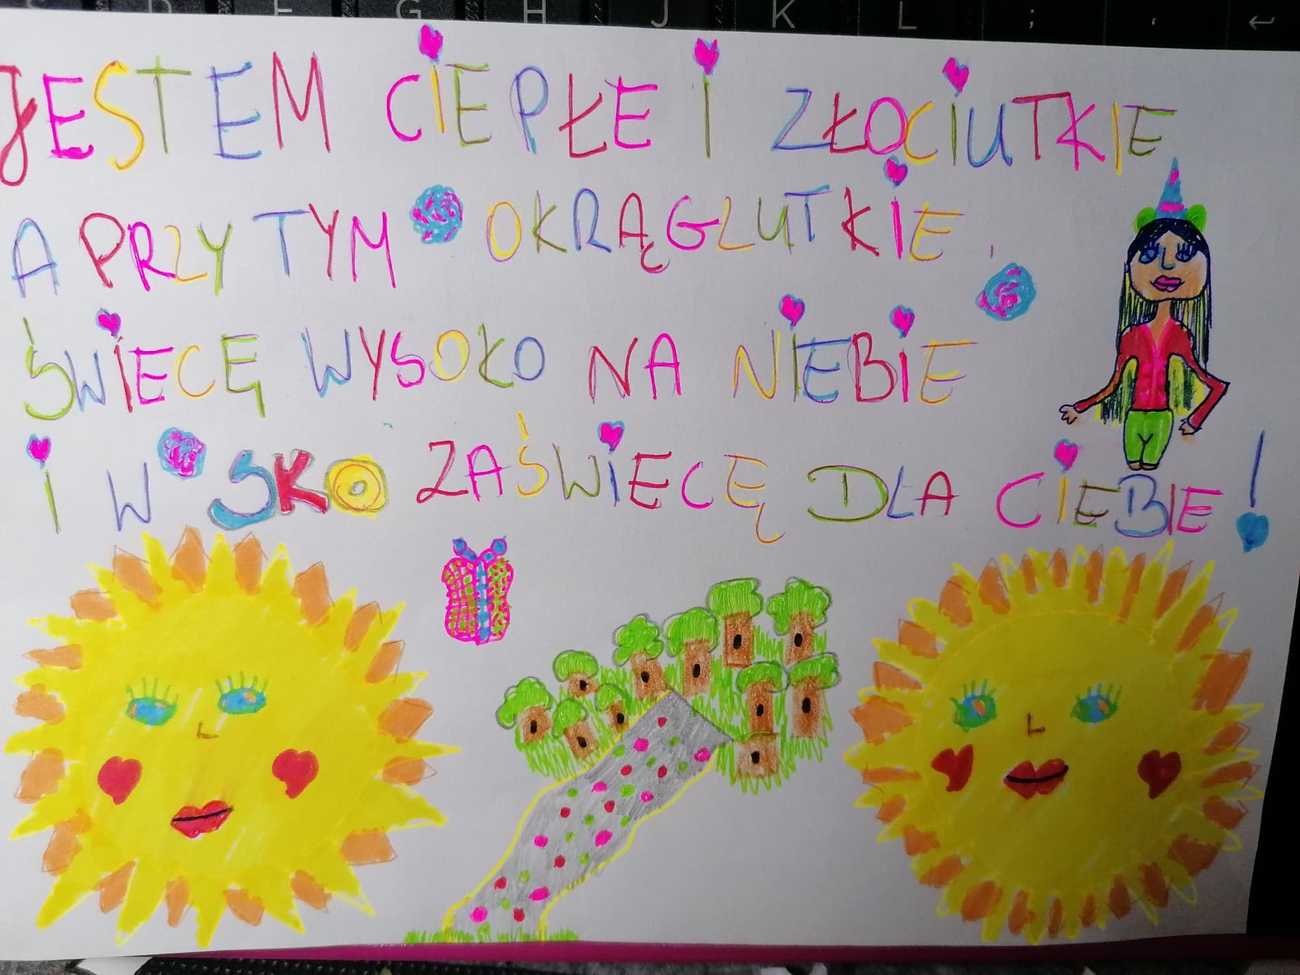 D F G H J K L ; ' ↵
JESTEM CIEPŁE I ZŁOCIUTKIE
A PRZY TYM OKRĄGLUTKIE.
ŚWIECĘ WYSOKO NA NIEBIE
I W SKO ZAŚWIECĘ DLA CIEBIE!